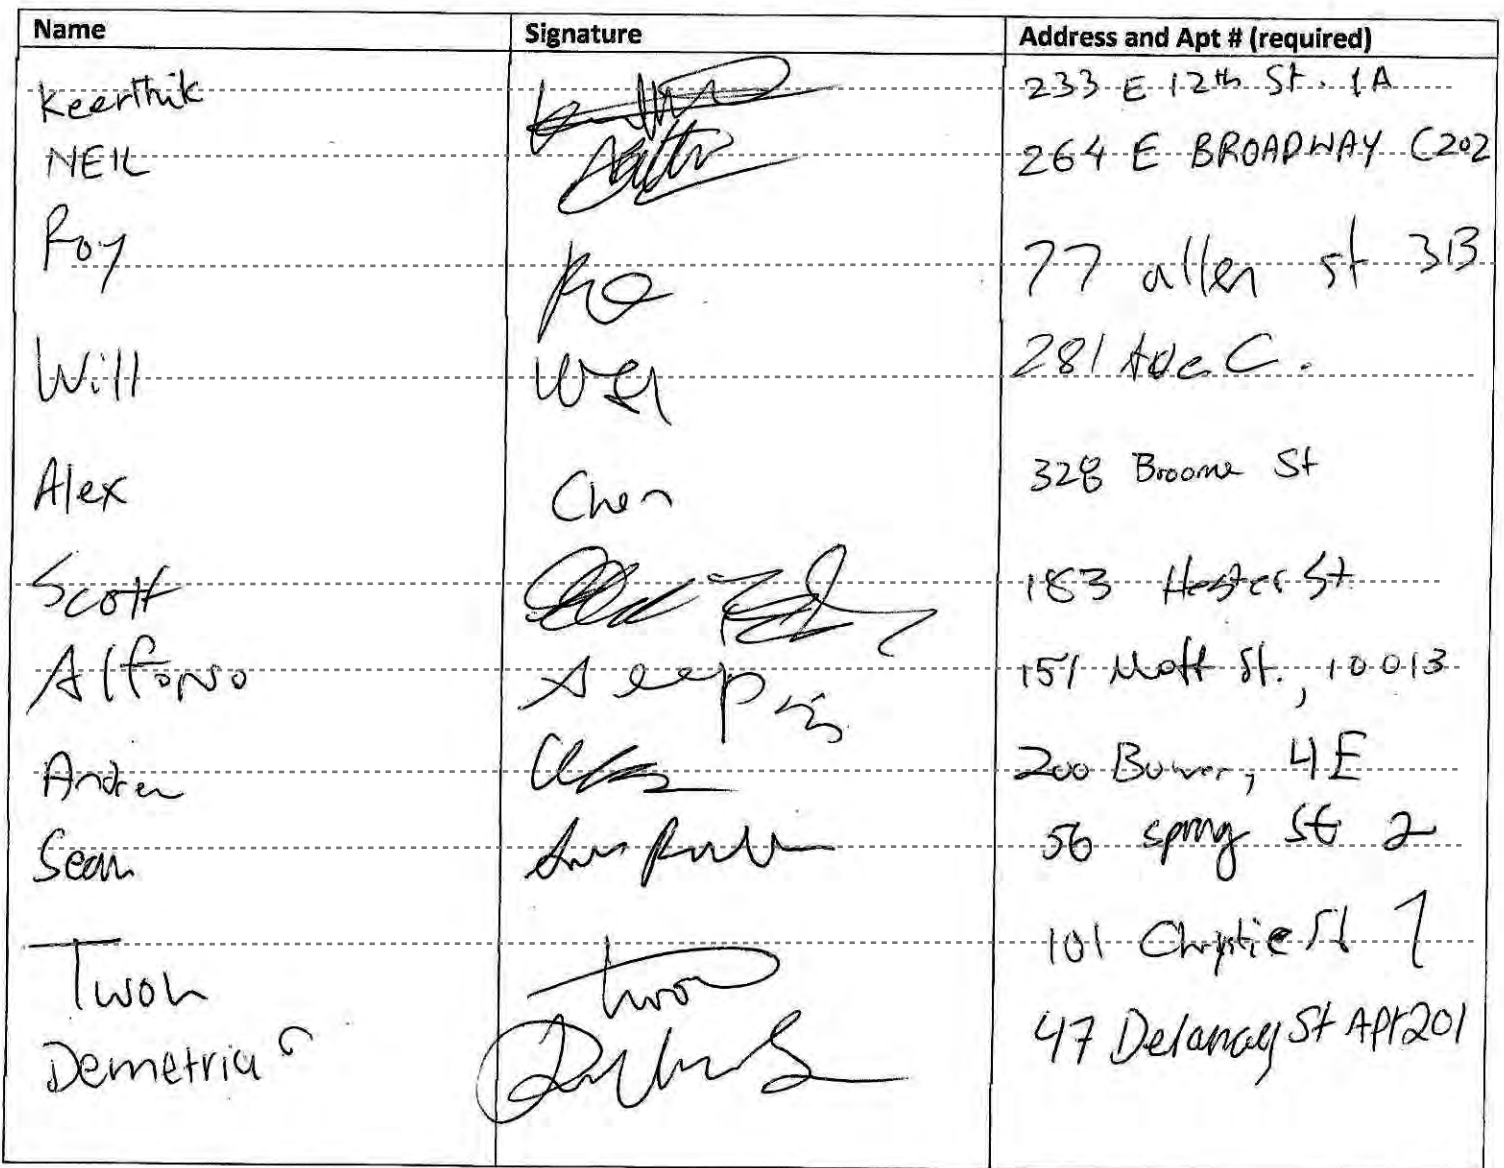 Name Signature Address and Apt # (required)
Keerthik 233 E 12th St. 1A
NEIL 264 E BROADWAY C202
Roy 77 allen st 3B
Will Will 281 Ave C.
Alex Chen 328 Broome St
Scott 183 Hester St
Alfonso 151 Mott St., 10013
Andrew 200 Bowery, 4E
Sean 56 spring St 2
Twon Twon 101 Chrystie St 7
Demetrius 47 Delancey St Apt 201